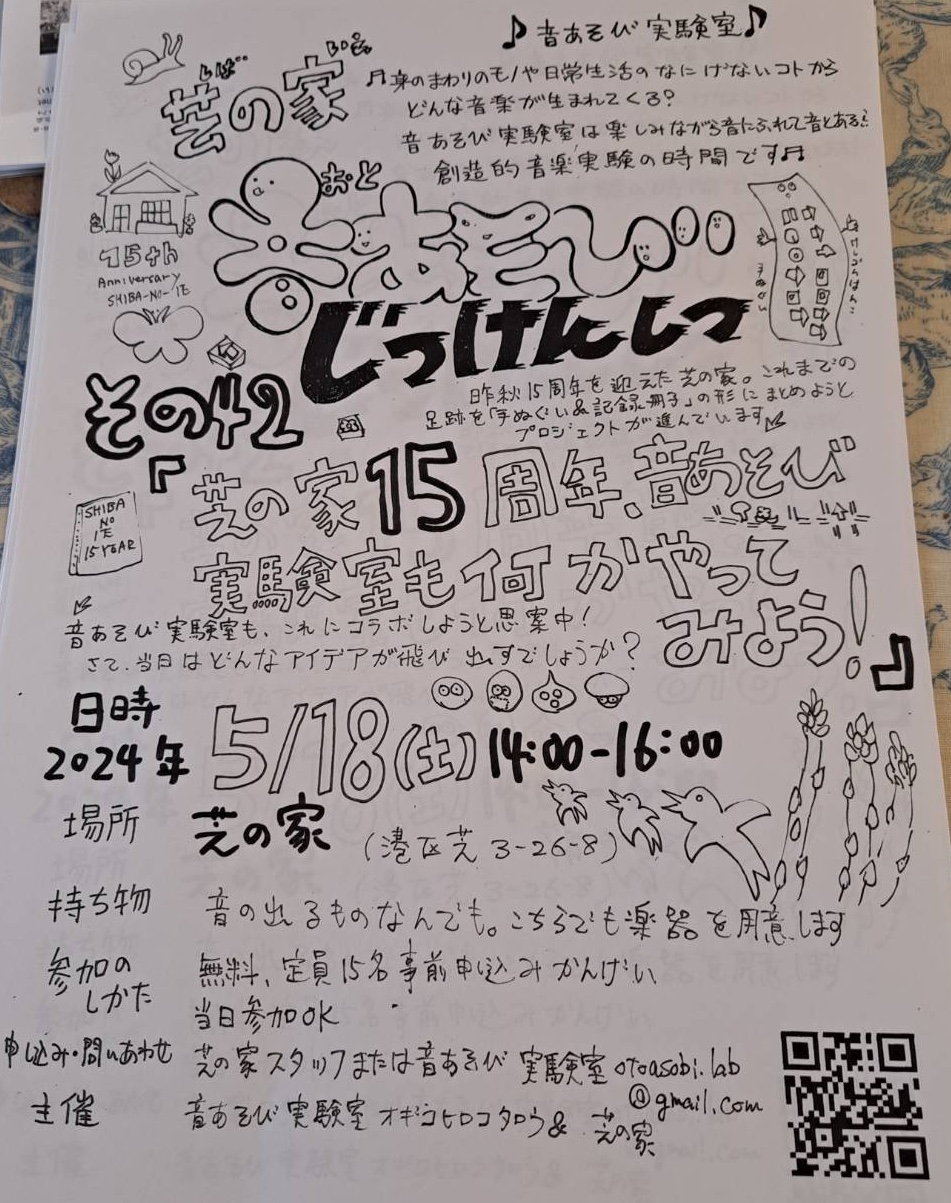 ♪音あそび実験室♪
しば いえ
芸の家
♬身のまわりのモノや日常生活のなにげないコトから
どんな音楽が生まれてくる?
音あそび実験室は楽しみながら音にふれて音とある
創造的音楽実験の時間です♬
おと
音あそび
じっけんしつ
15th
Anniversary
SHIBA-NO-IE
手ぬぐい
その42
昨秋15周年を迎えた芝の家。これまでの
足跡を「手ぬぐい&記録冊子」の形にまとめようと
プロジェクトが進んでいます
『芝の家15周年、音あそび
実験室も何かやって
みよう!』
SHIBA
NO
IE
15 YEAR
音あそび実験室も、これにコラボしようと思案中!
さて、当日はどんなアイデアが飛び出すでしょうか?
日時
2024年 5/18(土)14:00-16:00
場所 芝の家 (港区芝3-26-8)
持ち物 音の出るものなんでも。こちらでも楽器を用意します
参加の
しかた
無料、定員15名事前申込みかんげい
当日参加OK
申し込み・問いあわせ 芝の家スタッフまたは音あそび実験室 otoasobi.lab
@gmail.com
主催 音あそび実験室 オギコヒロコタロウ& 芝の家